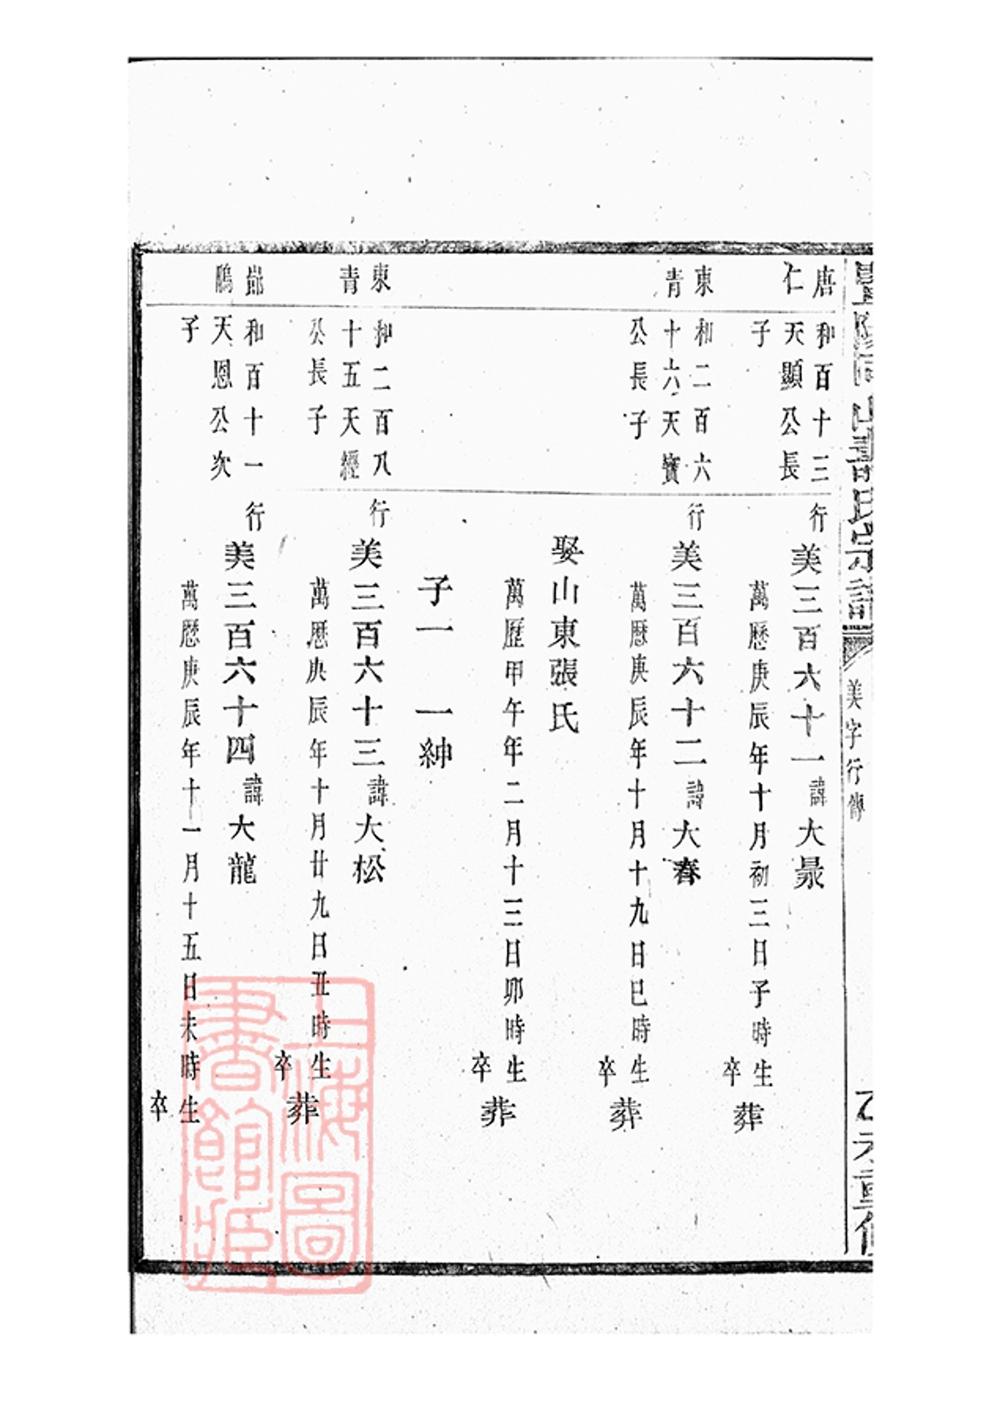 氏宗譜
美字行傳
重修
唐
仁
和百十三
天顯公長
子
行美三百六十一諱大
萬曆庚辰年十月初三日子時生
卒
葬
東
青
和二百六
十六天寶
公長子
行美三百六十二諱大春
萬曆庚辰年十月十九日巳時生
卒
葬
娶山東張氏
萬歷甲午年二月十三日卯時生
卒
葬
子一 一紳
東
青
和二百八
十五天經
公長子
行美三百六十三諱大松
萬歷庚辰年十月廿九日丑時生
卒
葬
鄣
鵬
和百十一
天恩公次
子
行美三百六十四諱大龍
萬曆庚辰年十一月十五日未時生
卒
上海圖
書館藏